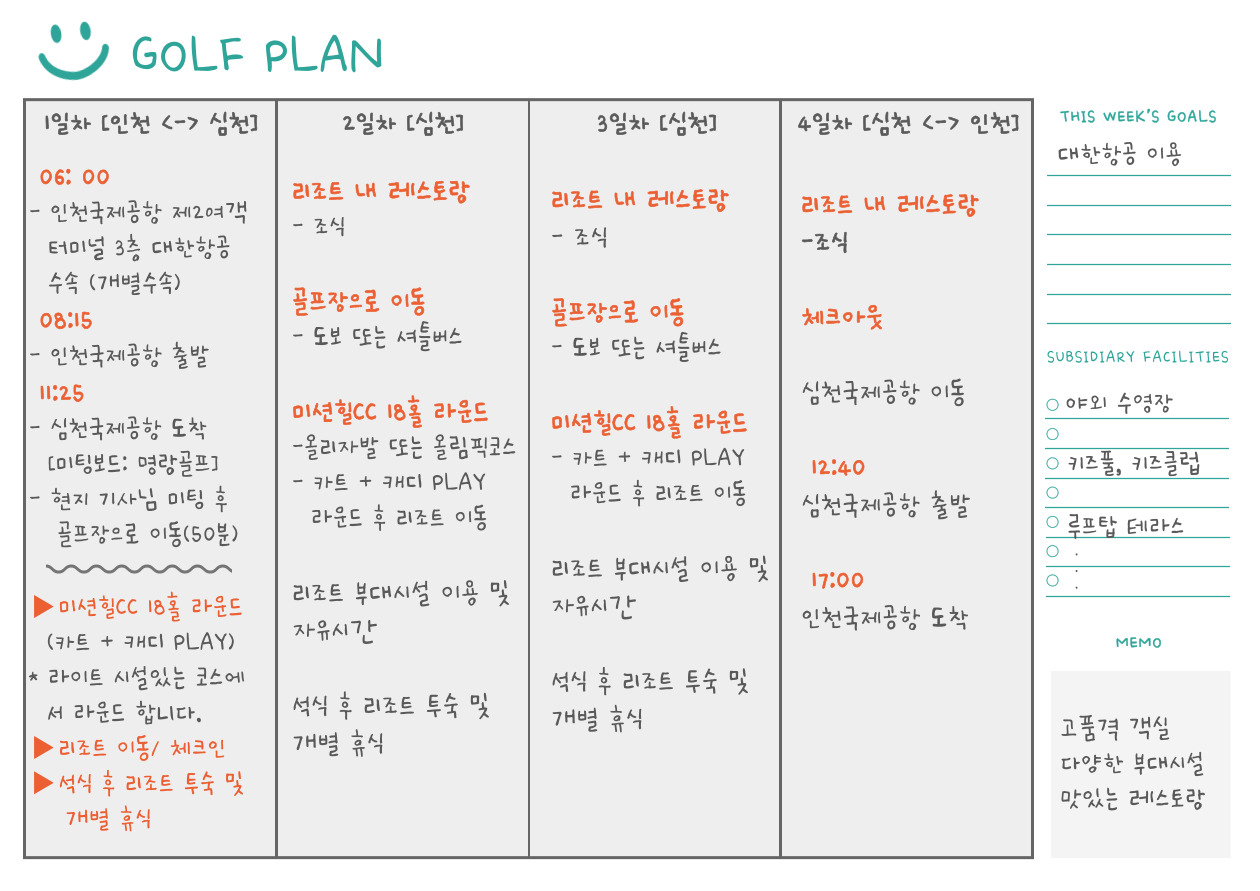 GOLF PLAN
1일차 [인천 <-> 심천]
06: 00
- 인천국제공항 제2여객
터미널 3층 대한항공
수속 (개별수속)
08:15
- 인천국제공항 출발
11:25
- 심천국제공항 도착
[미팅보드: 명랑골프]
- 현지 기사님 미팅 후
골프장으로 이동(50분)
▶ 미션힐CC 18홀 라운드
(카트 + 캐디 PLAY)
* 라이트 시설있는 코스에
서 라운드 합니다.
▶ 리조트 이동/ 체크인
▶ 석식 후 리조트 투숙 및
개별 휴식
2일차 [심천]
리조트 내 레스토랑
- 조식
골프장으로 이동
- 도보 또는 셔틀버스
미션힐CC 18홀 라운드
-올리자발 또는 올림픽코스
- 카트 + 캐디 PLAY
라운드 후 리조트 이동
리조트 부대시설 이용 및
자유시간
석식 후 리조트 투숙 및
개별 휴식
3일차 [심천]
리조트 내 레스토랑
- 조식
골프장으로 이동
- 도보 또는 셔틀버스
미션힐CC 18홀 라운드
- 카트 + 캐디 PLAY
라운드 후 리조트 이동
리조트 부대시설 이용 및
자유시간
석식 후 리조트 투숙 및
개별 휴식
4일차 [심천 <-> 인천]
리조트 내 레스토랑
-조식
체크아웃
심천국제공항 이동
12:40
심천국제공항 출발
17:00
인천국제공항 도착
THIS WEEK'S GOALS
대한항공 이용
SUBSIDIARY FACILITIES
야외 수영장
키즈풀, 키즈클럽
루프탑 테라스
.
:
MEMO
고품격 객실
다양한 부대시설
맛있는 레스토랑